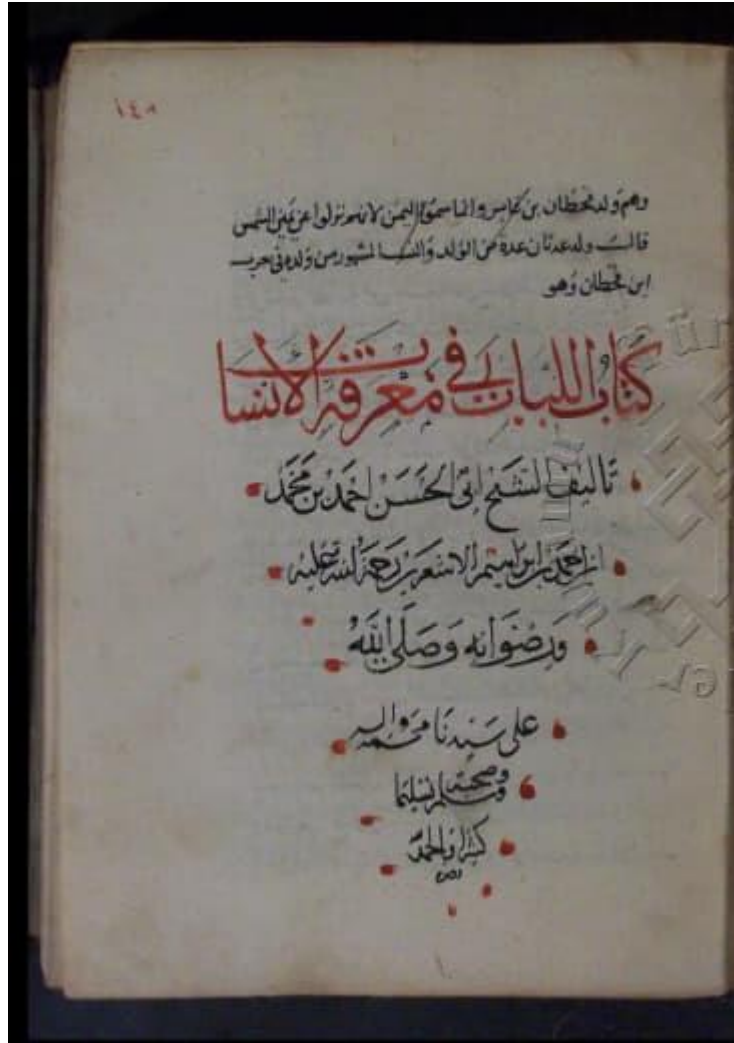 ١٤٨
وهم ولد قحطان بن عابر وانما سموا اليمن لانهم نزلوا عن يمين الشمس
قالت ولد عدنان عدة من الولد والنسا المشهور من ولده في حرب
ابن قحطان وهو
كتاب اللباب في معرفة الانساب
تاليف الشيخ ابي الحسن احمد بن محمد
ابن احمد بن ابراهيم الاشعري رحمة الله عليه
ورضوانه وصلى الله
على سيدنا محمد واله
وصحبه
وسلم تسليما
كثيرا والحمد